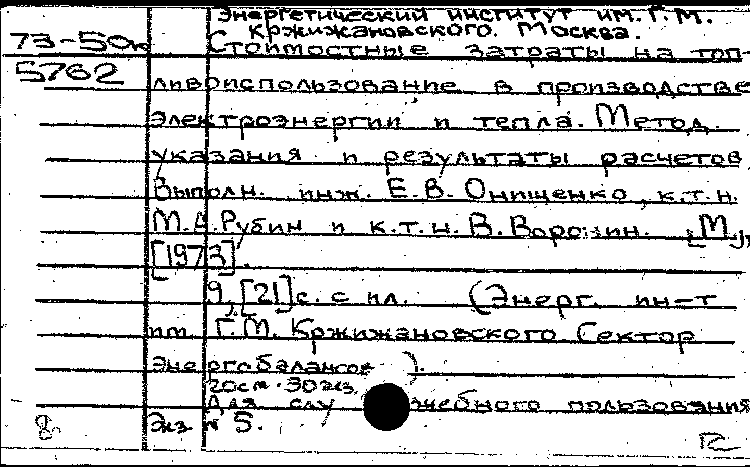 Энергетический институт им. Г.М.
Кржижановского. Москва.
73-50к Стоимостные затраты на топ-
5762 ливоиспользование в производстве
электроэнергии и тепла. Метод.
указания и результаты расчетов
Выполн. инж. Е.В. Онищенко, к.т.н.
М.А. Рубин и к.т.н. В. Воронин. [М.],
[1973].
9, [21] с. с ил. (Энерг. ин-т
им. Г.М. Кржижановского. Сектор
энергобалансов).
20см. 30экз.
Для служебного пользования
Экз. № 5.